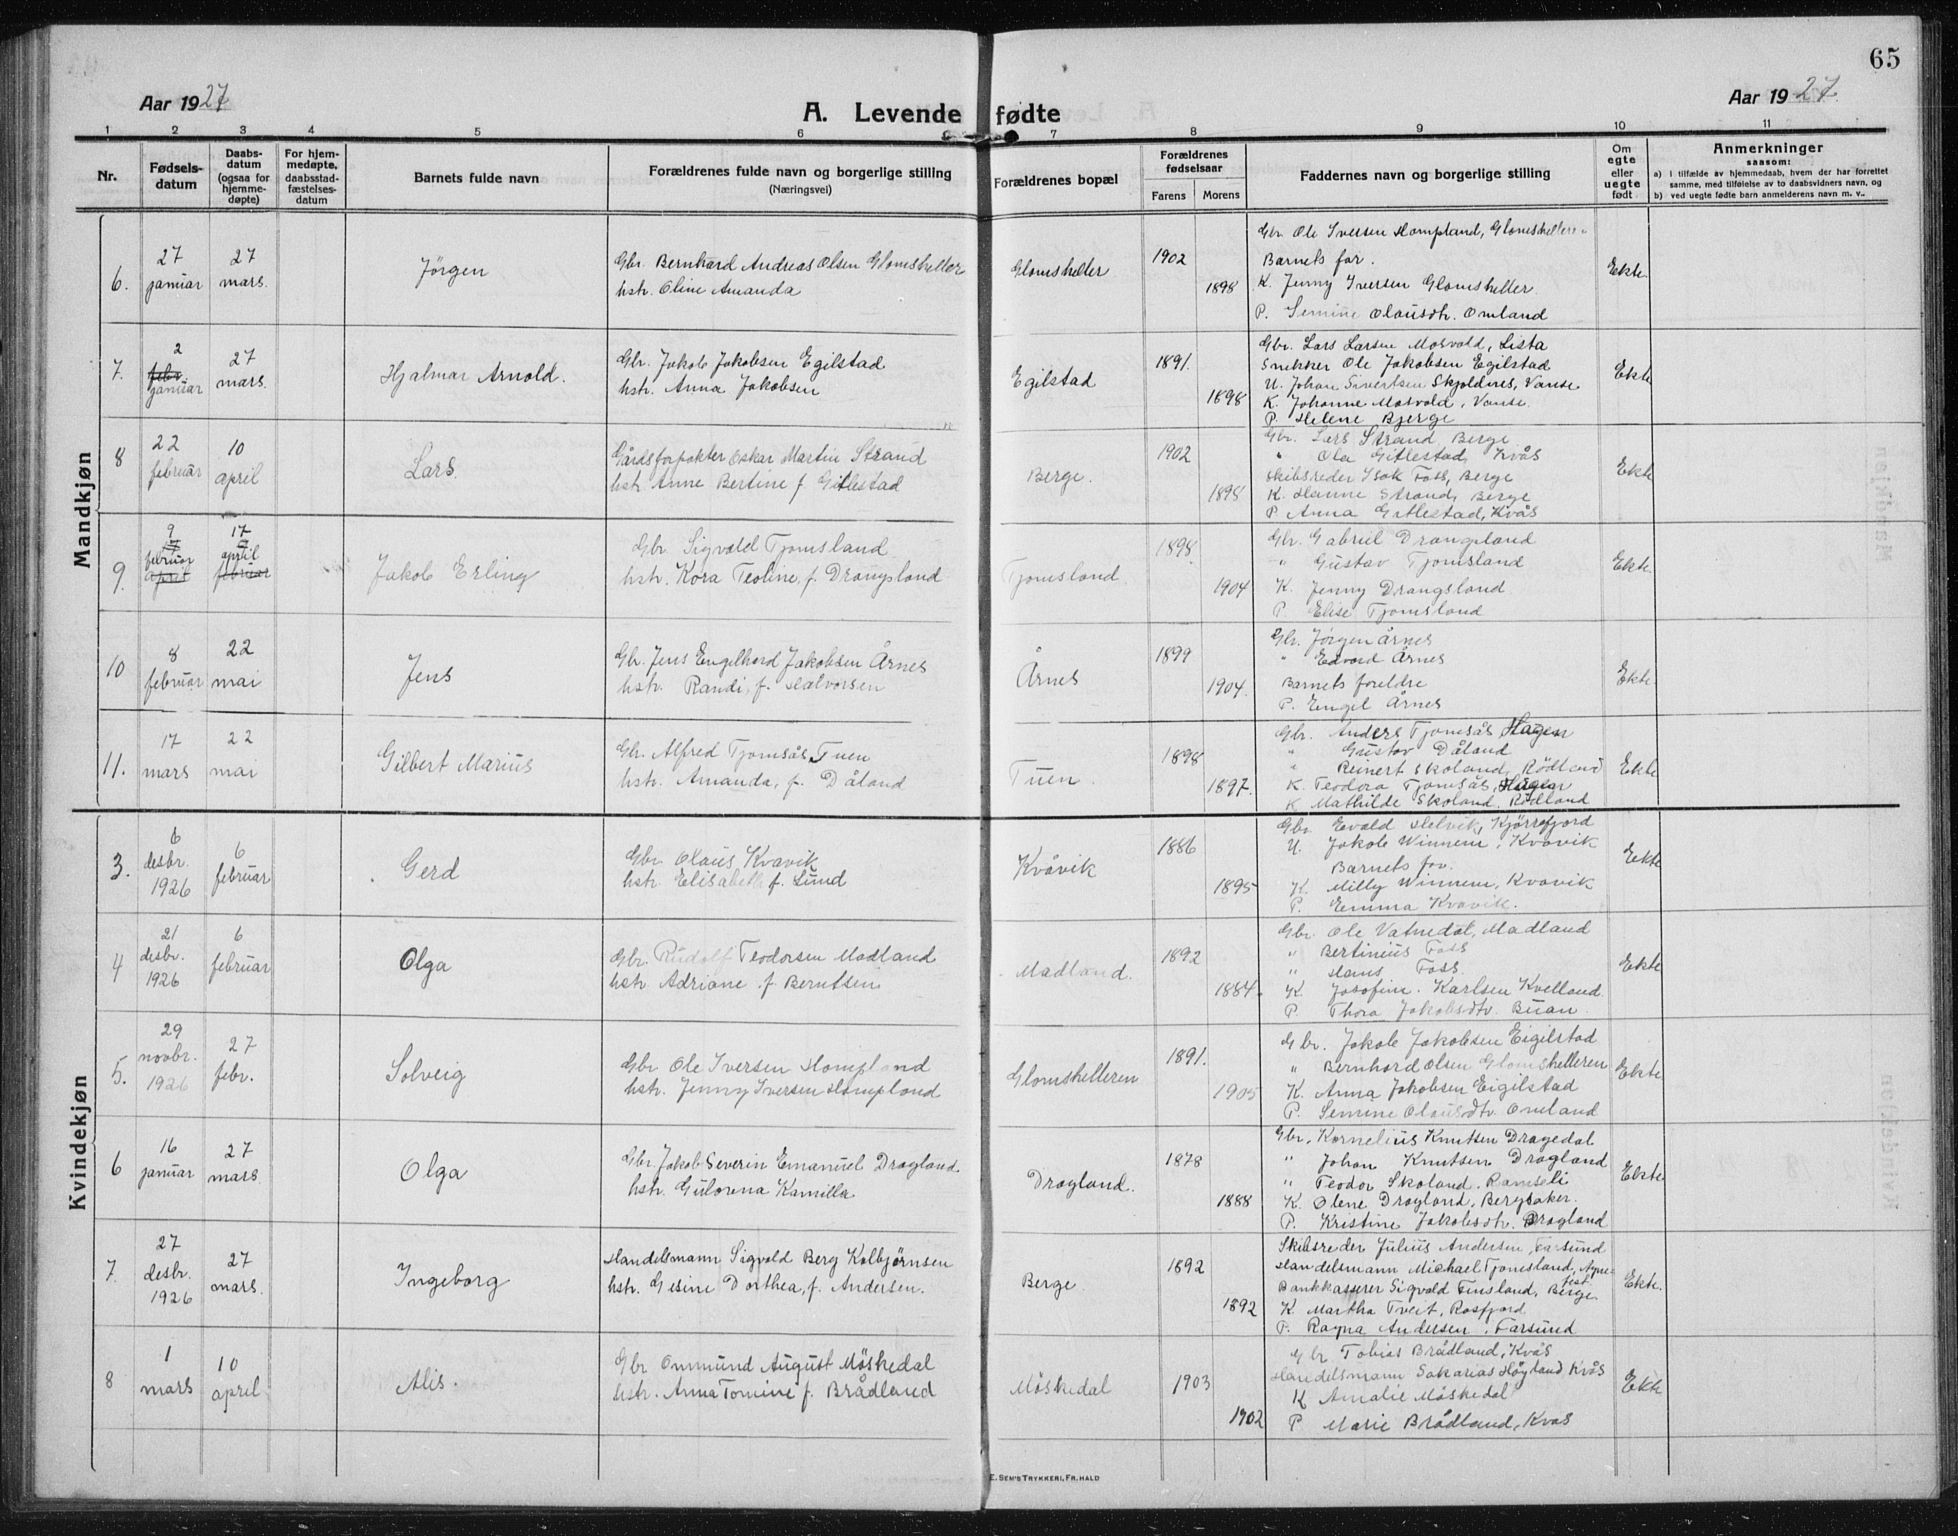 65
Aar 1927
A. Levende fødte
Aar 1927.
1 2 3 4 5 6 7 8 9 10 11
Nr.
Fødselsdatum
Daabsdatum (ogsaa for hjemmedøpte)
For hjemmedøpte, daabsstadfæstelsesdatum
Barnets fulde navn
Forældrenes fulde navn og borgerlige stilling
(Næringsvei)
Forældrenes bopæl
Forældrenes fødselsaar
Farens Morens
Faddernes navn og borgerlige stilling
Om egte eller uegte født
Anmerkninger
saasom:
a) I tilfælde av hjemmedaab, hvem der har forrettet samme, med tilføielse av to daabsvidners navn, og
b) ved uegte fødte barn anmelderens navn m. v..
Mandkjøn
6.
27 januar
27 mars.
Jörgen
Gbr. Bernhard Andreas Olsen Glomsheller
hstr. Oline Amanda
Glomsheller
1902
1898
Gbr. Ole Iversen Hompland, Glomsheller
Barnets far.
K. Jenny Iversen Glomsheller.
P. Semine Olausdtr. Omland
Ekte.
7.
2 febr. januar
27 mars.
Hjalmar Arnold.
Gbr. Jakob Jakobsen Egilstad
hstr. Anna Jakobsen
Egilstad
1891.
1898
Gbr. Lars Larsen Mosvold, Lista
Snekker Ole Jakobsen Egilstad
U. Johan Sivertsen Skjoldnes, Vanse
K. Johanne Mosvold, Vanse.
P. Helene Bjerge
Ekte
8
22 februar
10 april
Lars.
Gårdsforpakter Oskar Martin Strand
hstr. Anne Bertine f. Gitlestad
Berge.
1902
1898
Gbr. Lars Strand Berge
" Ola Gitlestad, Kvås
Skibsreder Isak Foss, Berge
K. Hanne Strand, Berge
P. Anna Gitlestad, Kvås
Ekte
9.
9 februar april
17 april februar
Jakob Erling
Gbr. Sigvald Tjomsland
hstr. Kora Teoline, f. Drangsland
Tjomsland.
1898
1904
Gbr. Gabriel Drangsland
" Gustav Tjomsland
K. Jenny Drangsland
P. Elise Tjomsland
Ekte.
10
8 februar
22 mai
Jens
Gbr. Jens Engelhard Jakobsen Årnes
hstr. Randi, f. Halvorsen
Årnes
1899
1904.
Gbr. Jörgen Årnes
" Edvard Årnes
Barnets foreldre
P. Engel Årnes
Ekte.
11.
17 mars
22 mai
Gilbert Marius
Gbr. Alfred Tjomsås, Tuen
hstr. Amanda, f. Dåland
Tuen.
1898
1897.
Gbr. Anders Tjomsås Hagen
" Gustav Dåland
" Reinert Skoland, Rödland
K. Teodora Tjomsås, Hagen
K. Mathilde Skoland, Rödland
Ekte
Kvindekjøn
3.
6 desbr. 1926
6 februar
Gerd
Gbr. Olaus Kvavik
hstr. Elisabeth f. Lund
Kvåvik
1886
1895
Gbr. Evald Helvik, Kjörrefjord
U. Jakob Winnem, Kvavik
Barnets far.
K. Milly Winnem, Kvavik
P. Emma Kvavik.
Ekte
4
21 desbr. 1926
6 februar
Olga
Gbr. Rudolf Teodorsen Madland
hstr. Adriane f. Berntsen
Madland.
1892
1884.
Gbr. Ole Vatnedal, Madland
" Bertinius Foss
" Hans Foss.
K. Josofine Karlsen Kvelland.
P. Thora Jakobsdtr. Buan.
Ekte
5.
29 novbr. 1926
27 febr.
Solveig
Gbr. Ole Iversen Hompland
hstr. Jenny Iversen Hompland
Glomshelleren
1891.
1905
Gbr. Jakob Jakobsen Eigilstad
" Bernhard Olsen Glomshelleren
K. Anna Jakobsen Eigilstad
P. Semine Olausdtr. Omland
Ekte
6
16 januar
27 mars.
Olga
Gbr. Jakob Severin Emanuel Dragland.
hstr. Gulovena Kamilla
Dragland.
1878
1888
Gbr. Kornelius Knutsen Dragedal
" Johan Knutsen Dragland
" Teodor Skoland, Ramseli
K. Olene Dragland, Bergsaker.
P. Kristine Jakobsdtr. Dragland
Ekte
7.
27 desbr. 1926
27 mars.
Ingeborg
Handelsmann Sigvald Berg Kolbjörnsen
hstr. Gesine Dorthea, f. Andersen.
Berge
1892
1892
Skibsreder Julius Andersen, Farsund
Handelsmann Michael Tjomsland, Agnefest
Bankkasserer Sigvald Finsland, Berge
K. Martha Tveit, Rosfjord
P. Ragna Andersen, Farsund
Ekte.
8
1 mars
10 april
Alis.
Gbr. Ommund August Möskedal
hstr. Anna Tomine f. Brådland
Möskedal
1903
1902
Gbr Tobias Brådland, Kvås
Handelsmann Sakarias Högland Kvås
K Amalie Möskedal
P Marie Brådland, Kvås
Ekte
E. SEM'S TRYKKERI, FR.HALD